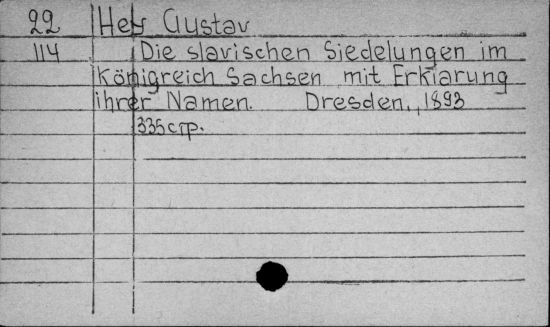 22 Hey Gustav
114 Die slavischen Siedelungen im
Königreich Sachsen mit Erklärung
ihrer Namen. Dresden, 1893
335 стр.